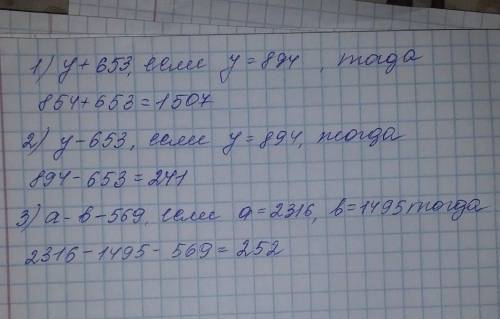 1) y+653, если y=894, тогда
854+653=1507
2) y-653, если y=894, тогда
894-653=241
3) a-b-569, если a=2316, b=1495 тогда
2316-1495-569=252